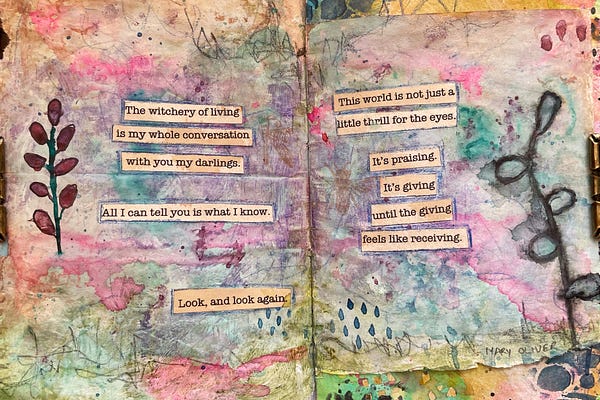 The witchery of living
is my whole conversation
with you my darlings.
All I can tell you is what I know.
Look, and look again.
This world is not just a
little thrill for the eyes.
It's praising.
It's giving
until the giving
feels like receiving.
MARY OLIVER